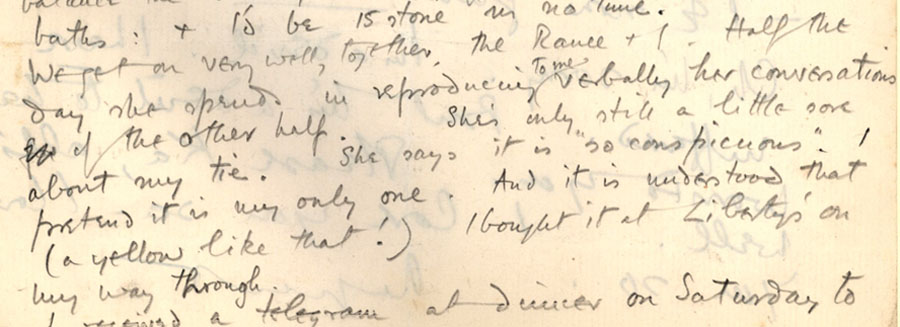 baths: + I'd be 15 stone in no time.
We get on very well, together, the Ranee + I. Half the
day she spends in reproducing to me verbally her conversations
of the other half. She's only still a little sore
about my tie. She says it is "so conspicuous". I
pretend it is my only one. And it is understood that
(a yellow like that!) I bought it at Liberty's on
my way through.
I received a telegram at dinner on Saturday to